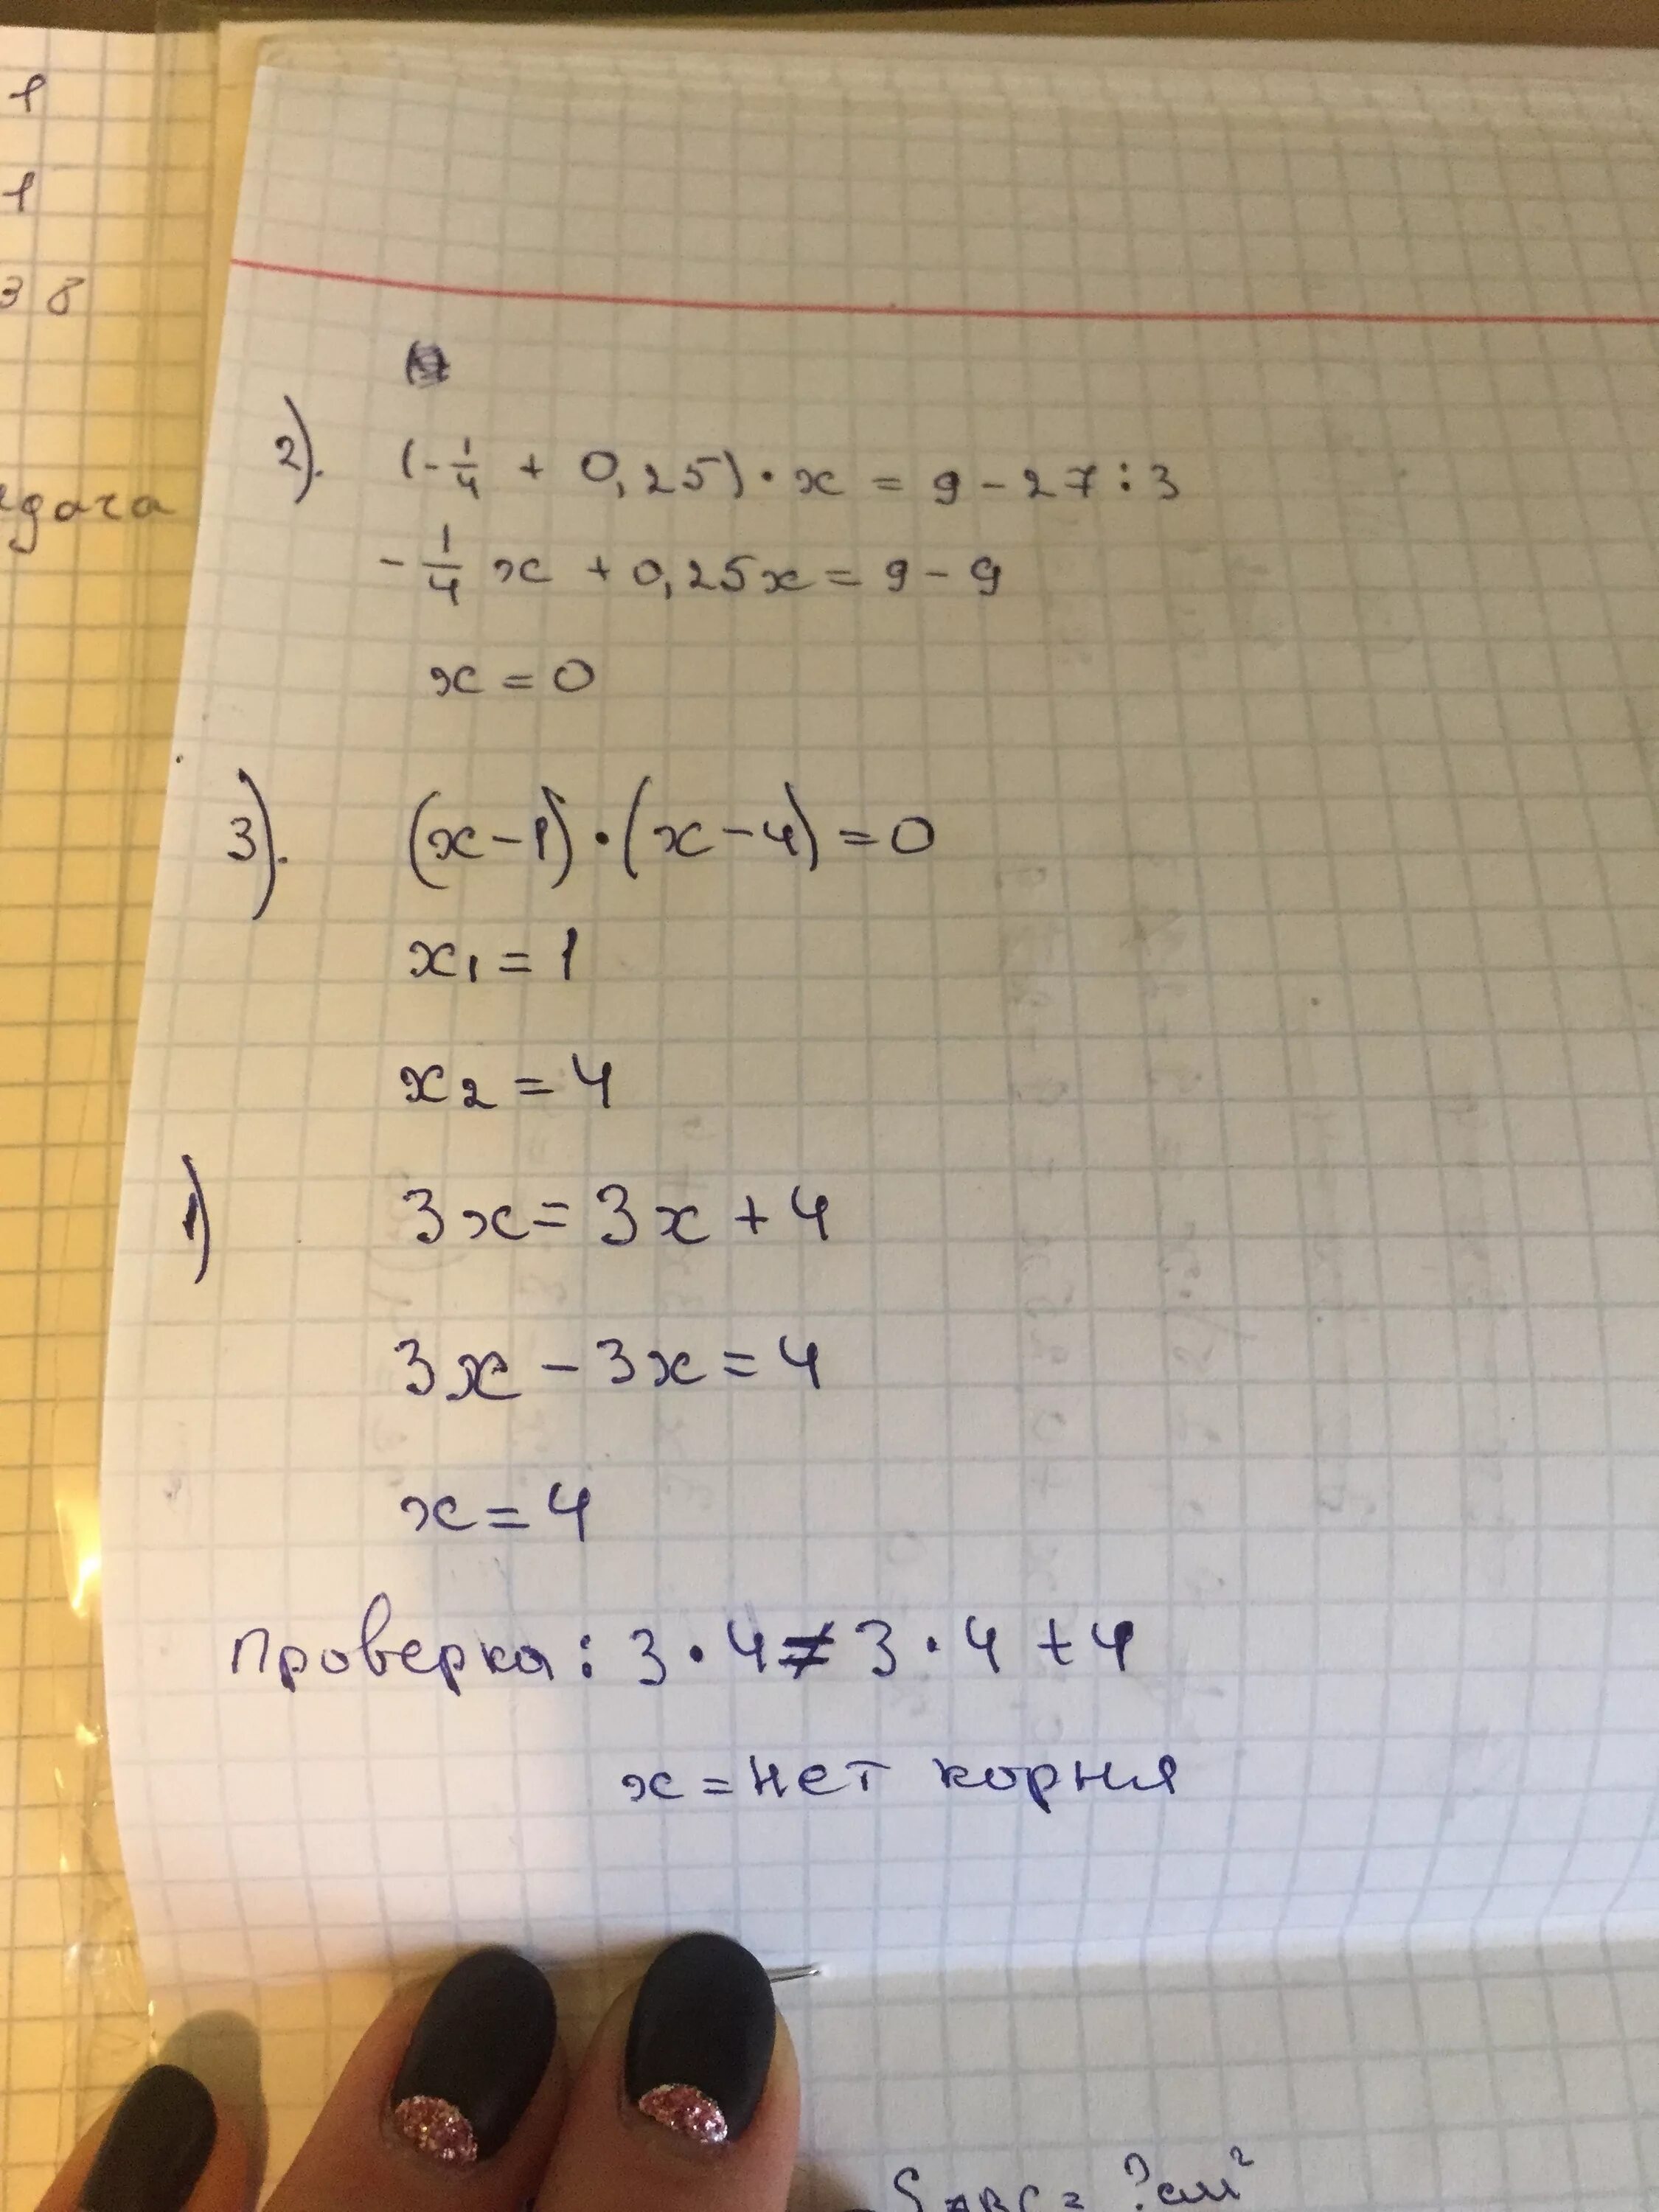 1
1
38
2). (-1/4 + 0,25) · x = 9 - 27 : 3
-1/4 x + 0,25x = 9 - 9
x = 0
3). (x-1)·(x-4) = 0
x1 = 1
x2 = 4
1) 3x = 3x + 4
3x - 3x = 4
x = 4
Проверка: 3·4 ≠ 3·4 + 4
x = нет корня
SABC = ?см²